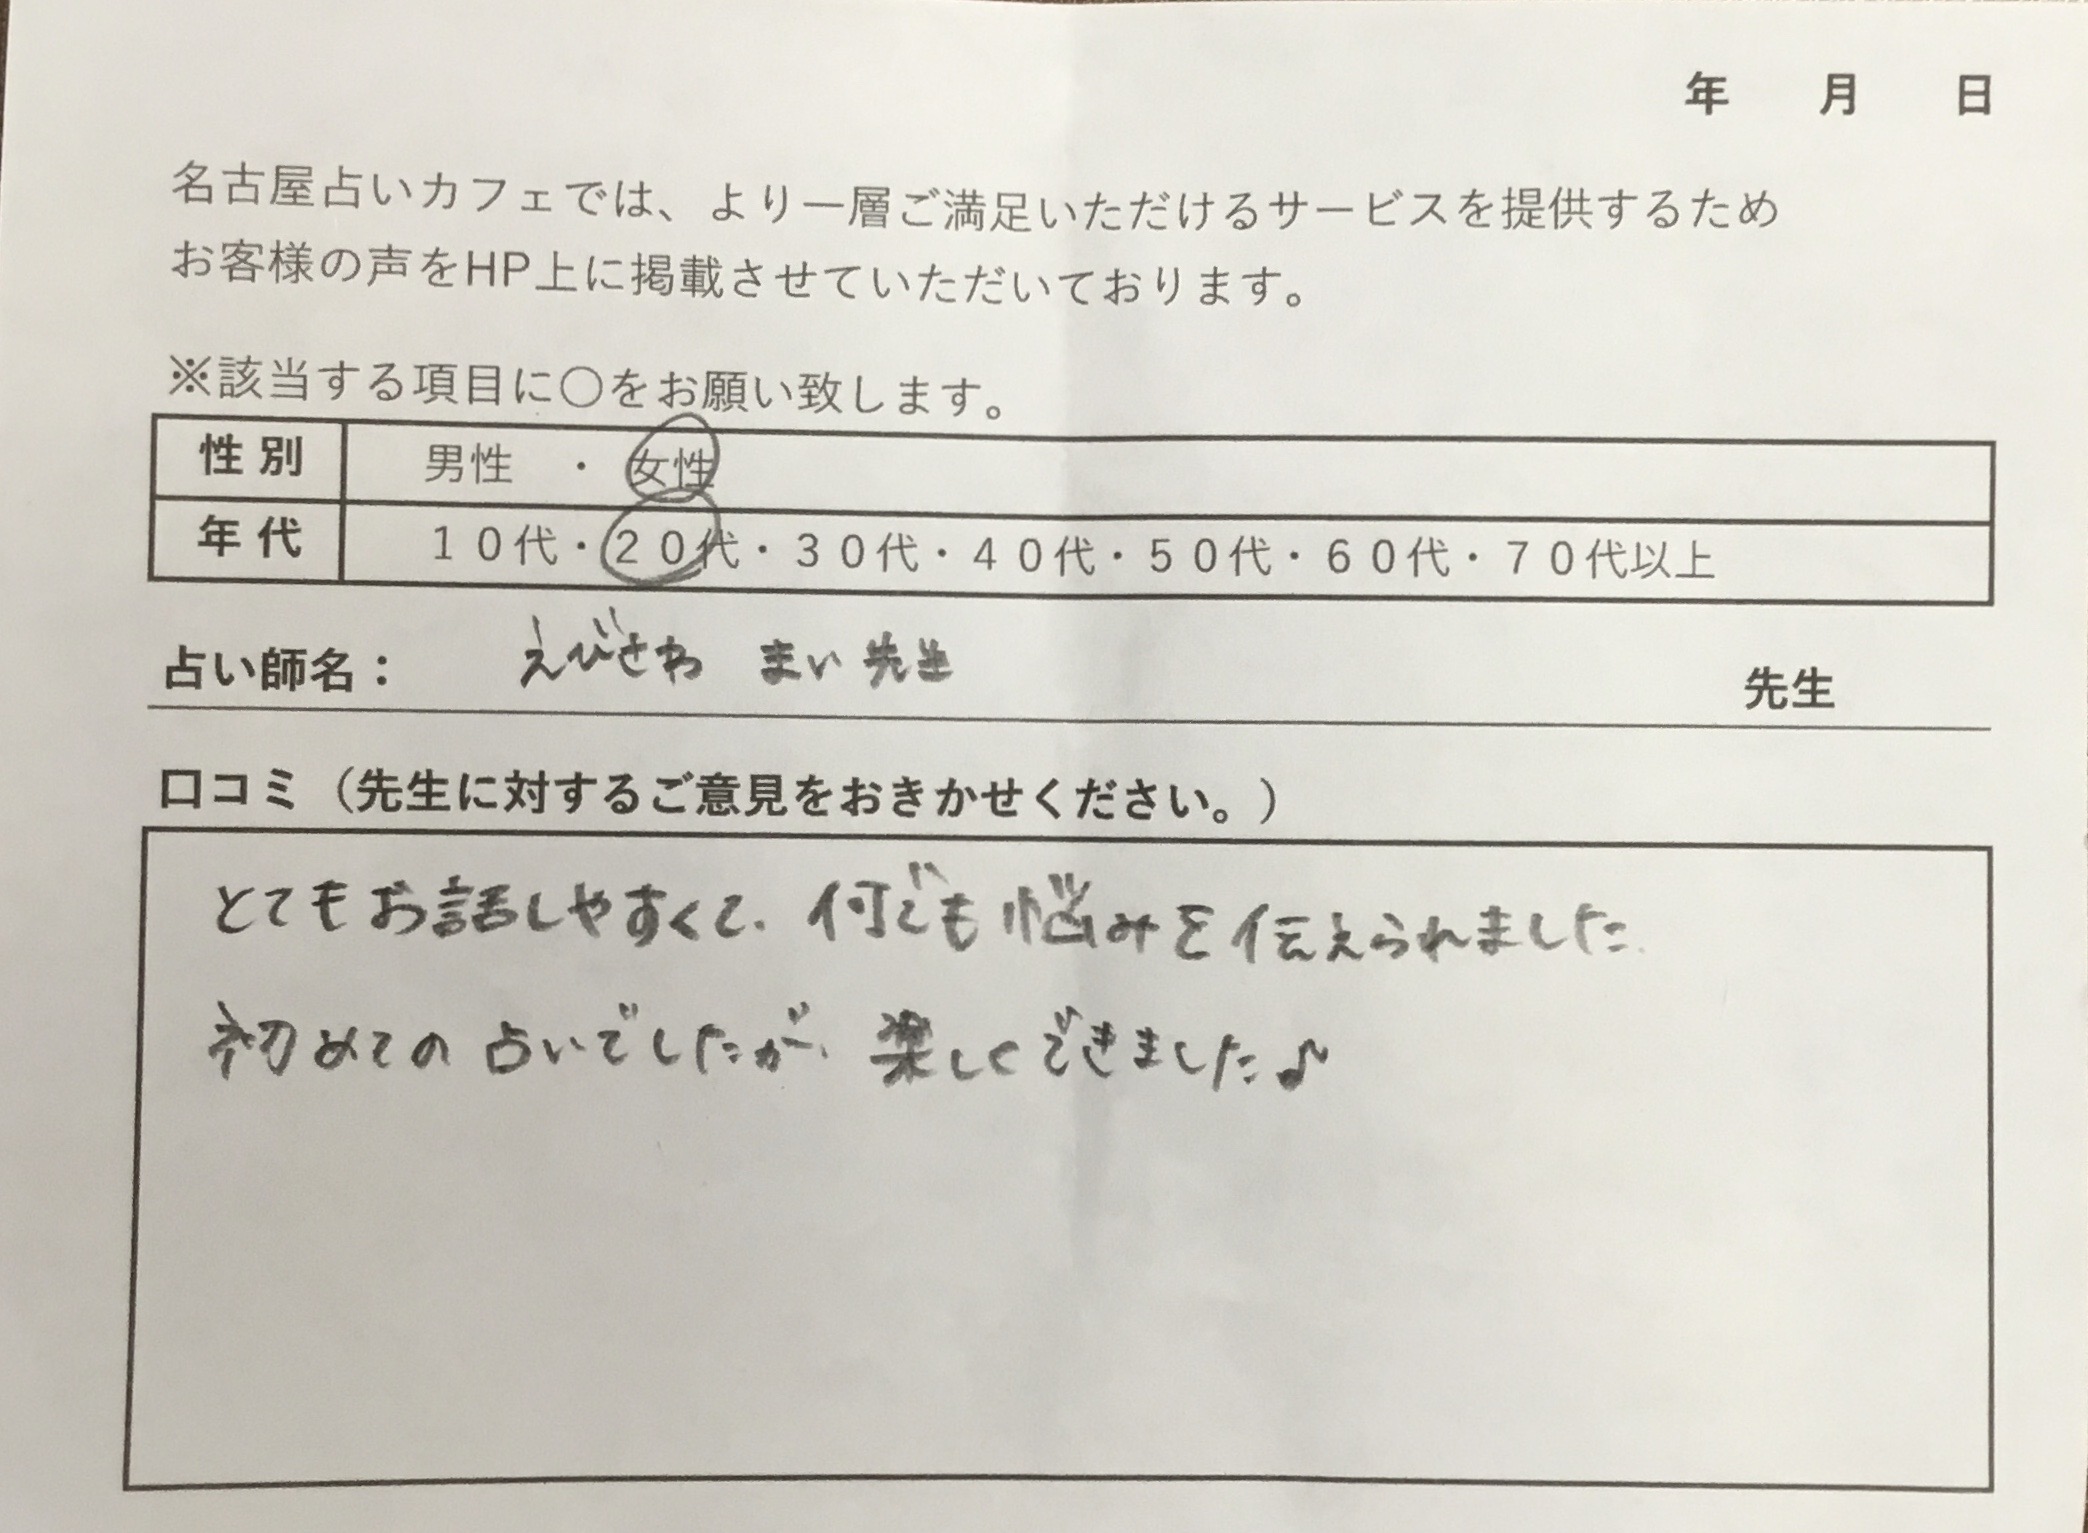 年　月　日
名古屋占いカフェでは、より一層ご満足いただけるサービスを提供するため
お客様の声をHP上に掲載させていただいております。
※該当する項目に○をお願い致します。
性別　男性　・　女性
年代　１０代・２０代・３０代・４０代・５０代・６０代・７０代以上
占い師名：　えびさわ　まい先生　先生
口コミ（先生に対するご意見をおきかせください。）
とてもお話しやすくて、何でも悩みを伝えられました。
初めての占いでしたが、楽しくできました♪